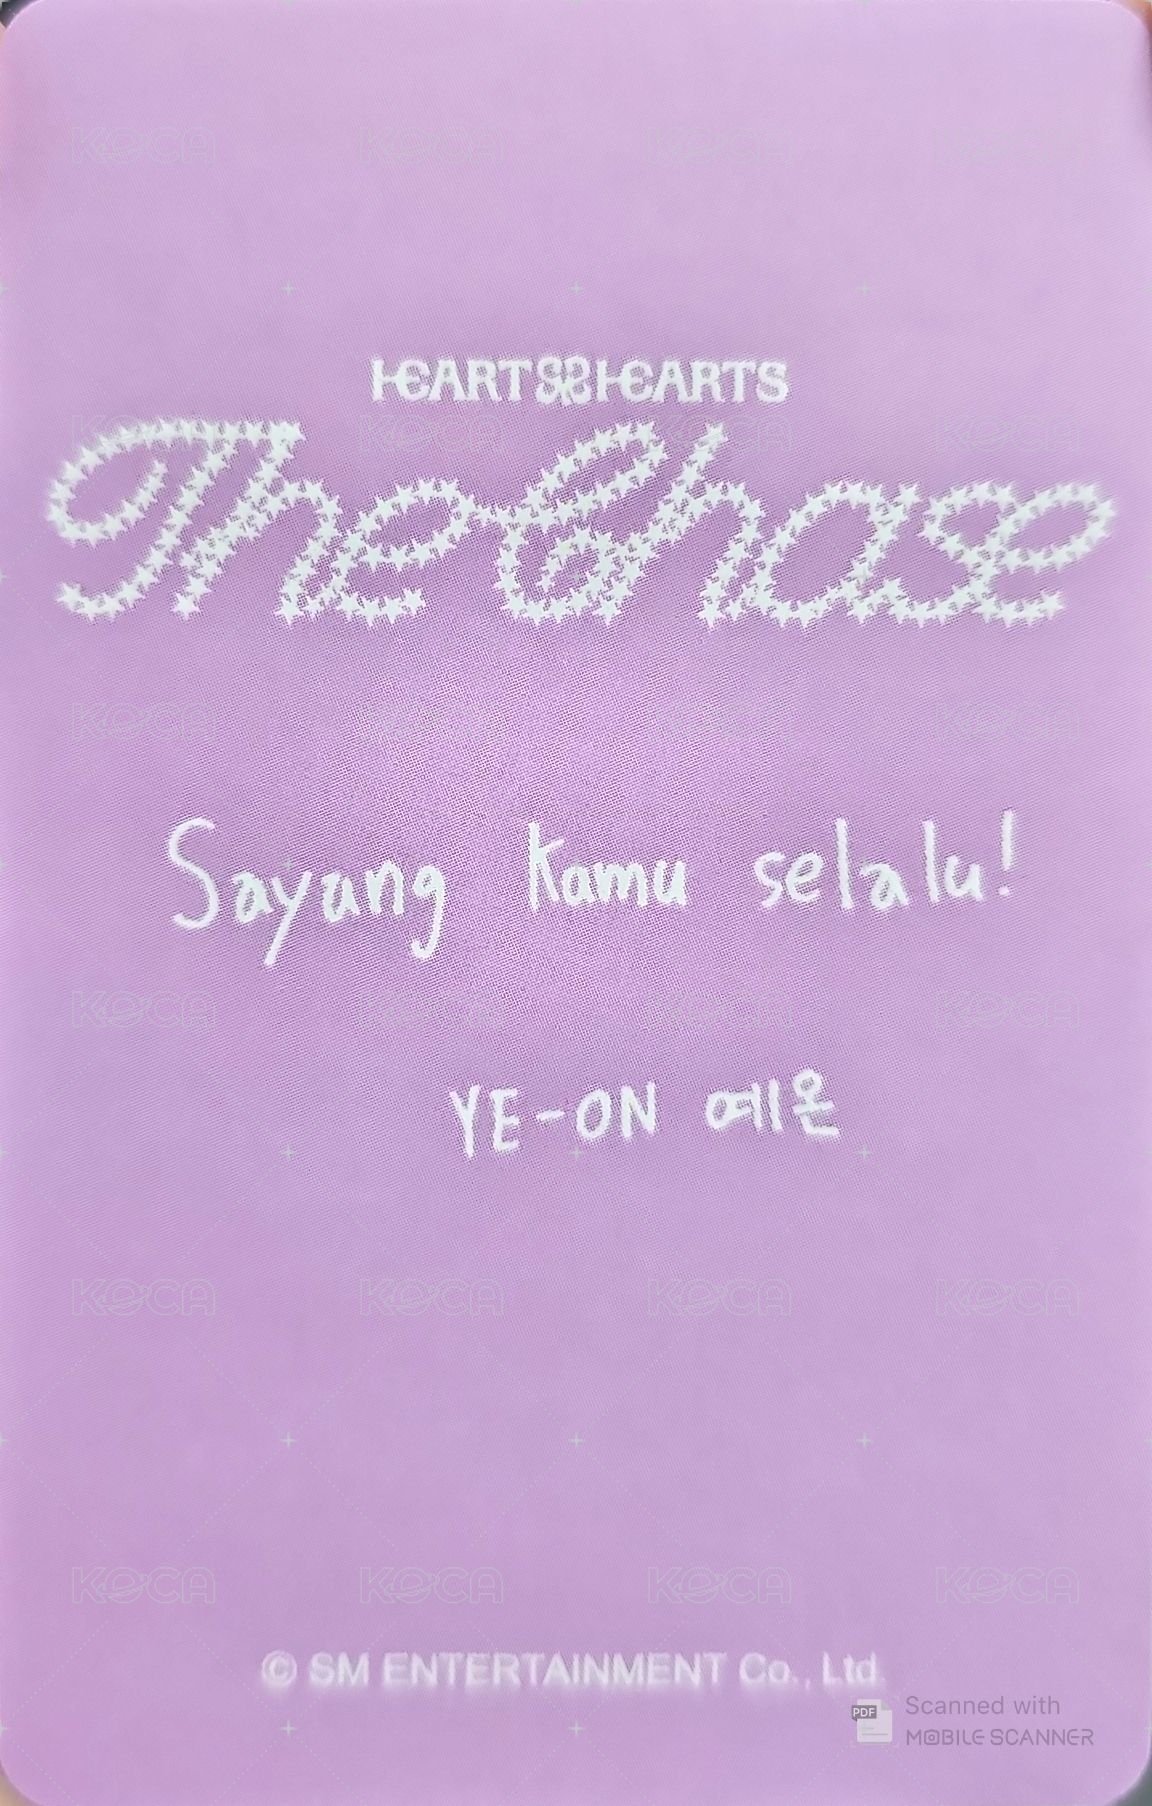 HEARTS2HEARTS
The Chase
Sayang kamu selalu!
YE-ON 예온
© SM ENTERTAINMENT Co., Ltd.
PDF
Scanned with
MOBILE SCANNER
KOCA KOCA KOCA KOCA
KOCA KOCA KOCA KOCA
KOCA KOCA KOCA KOCA
KOCA KOCA KOCA KOCA
KOCA KOCA KOCA KOCA
KOCA KOCA KOCA KOCA